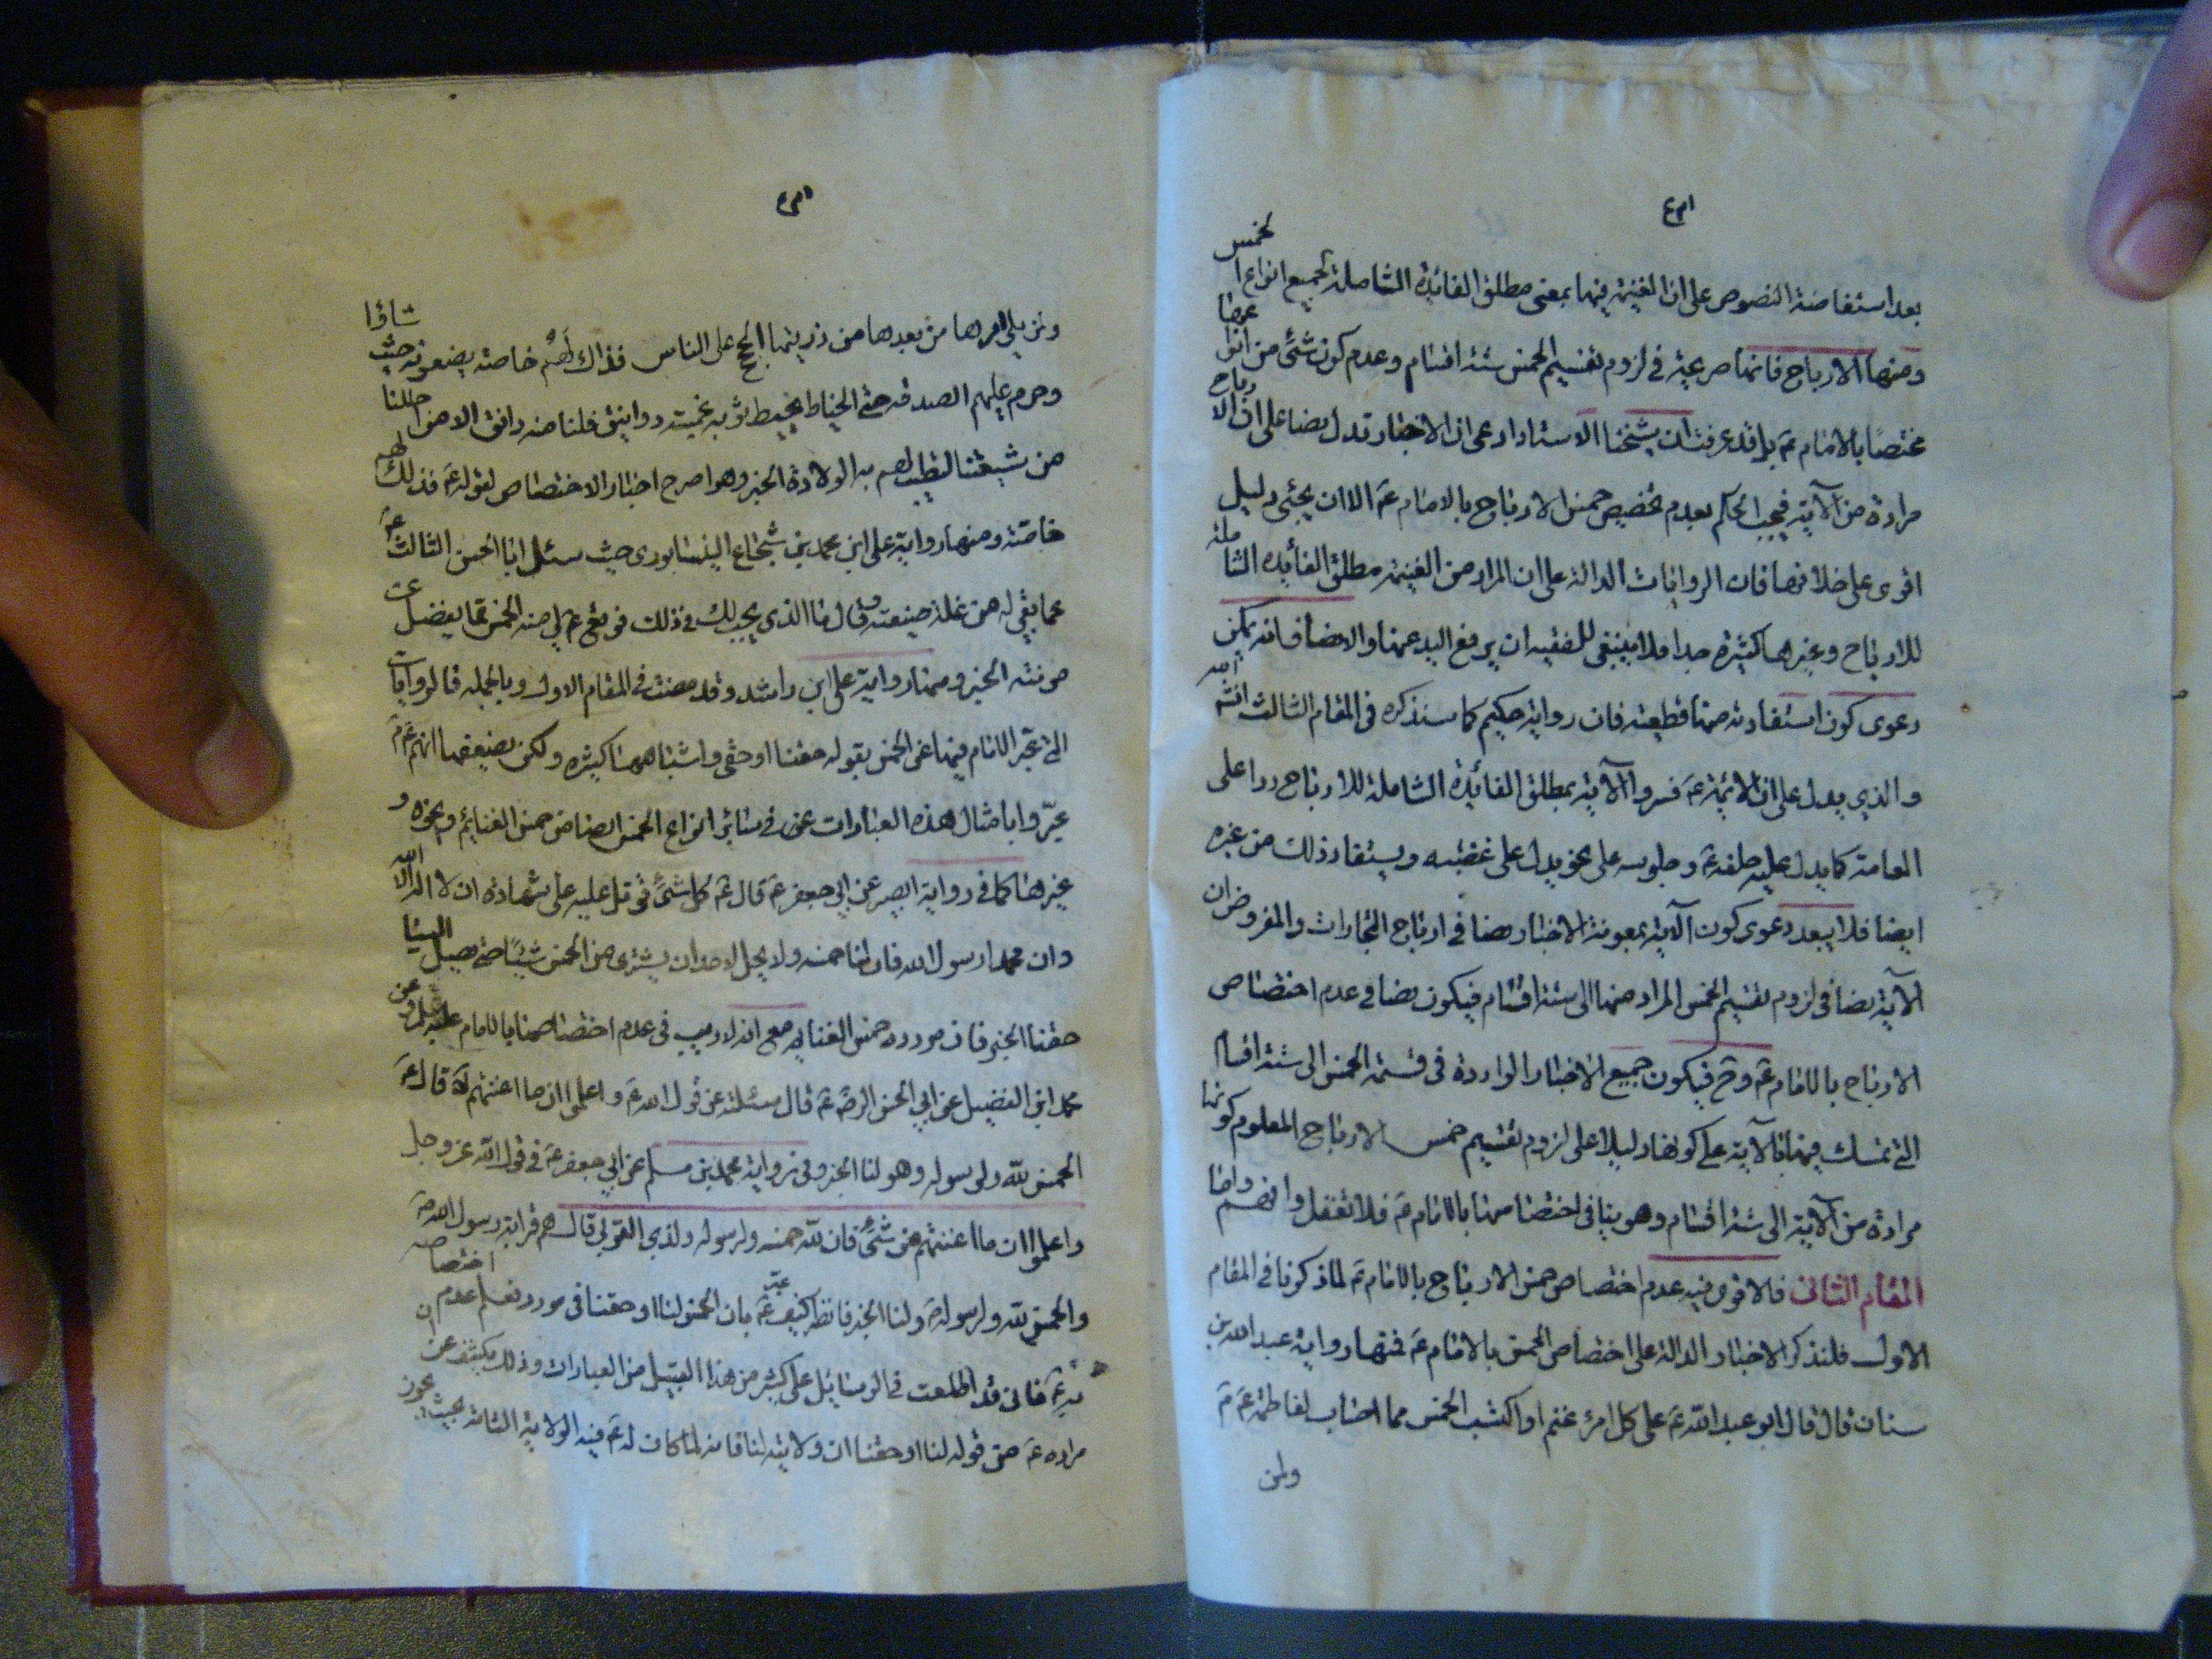 بعد استفاضة النصوص على ان الغنيمة فيها بمعنى مطلق الفائدة الشاملة لجميع انواع الخمس
ومنها الارباح فانها صريحة في لزوم تقسيم الخمس ستة اقسام وعدم كون شئ من انواعها
مختصا بالامام عَ بل قد عرفت ان شيخنا الاستاد ادعى ان الاخبار تدل نصا على ان الارباح
مرادة من الآية فيجب الحكم بعدم تخصيص خمس الارباح بالامام عَ الا ان يجئ دليل
اقوى على خلافها فان الروايات الدالة على ان المراد من الغنيمة مطلق الفائده الشاملة
للارباح وغيرها كثيرة جدا فلا ينبغى للفقيه ان يرفع اليد عنها والانصاف انه يمكن
دعوى كون استفادته منها قطعية فان رواية حكيم كما سنذكره فى المقام الثالث انشاء الله
والذي يدل على ان الائمة عَ فسروا الآية بمطلق الفائدة الشاملة للارباح ردا على
العامة كما يدل عليه حلفه عَ وجلوسه على نحو يدل على غضبه ويستفاد ذلك من غيره
ايضا فلا يبعد دعوى كون الآية بمعونة الاخبار نصا في ارباح التجارات والمفروض ان
الآية نصا فى لزوم تقسيم الخمس المراد منها الى ستة اقسام فيكون نصا في عدم اختصاص
الارباح بالامام عَ وح فيكون جميع الاخبار الواردة فى قسمة الخمس الى ستة اقسام
التى تمسك فيها بالآية على كونها دليلا على لزوم تقسيم خمس الارباح المعلوم كونها
مرادة من الآية الى ستة اقسام وهو ينافى اختصاصها بالامام عَ فلا تغفل وافهم واما
المقام الثانى فالاقوى فيه عدم اختصاص خمس الارباح بالامام عَ لما ذكرنا فى المقام
الاول فلنذكر الاخبار الدالة على اختصاص الخمس بالامام عَ فمنها رواية عبد الله بن
سنان قال قال ابو عبد الله عَ على كل امرء غنم او اكتسب الخمس مما اصاب لفاطمة عَ
ولمن
ولمن يلى امرها من بعدها من ذريتها الحجج على الناس فذاك لهم خاصة يضعونه حيث شاؤا
وحرم عليهم الصدقة حتى الخياط يخيط ثوبه بخمسة دوانيق فلنا منه دانق الا من احللنا
من شيعتنا لتطيب لهم به الولادة الخبر وهو اصرح اخبار الاختصاص لقوله عَ فذلك لهم
خاصة ومنها رواية على ابن محمد بن شجاع النيسابورى حيث سئل ابا الحسن الثالث عَ
عما بقى له من غلة ضيعته وقال ما الذى يجب لك فى ذلك فوقع عَ لى منه الخمس مما يفضل عن
مونته الخبر ومنها رواية على ابن راشد وقد مضت فى المقام الاول وبالجملة فالروايات
التى عبّر الامام فيها عن الخمس بقوله حقنا او حقى واشباههما كثيرة ولكن يضعفها انهم عَ
عبّروا بامثال هذه العبارات عن فى سائر انواع الخمس ايضا من خمس الغنايم ونحوه و
غيرها كما فى رواية ابى بصير عن ابى جعفر عَ قال عَ كل شئ قوتل عليه على شهادة ان لا اله الا الله
وان محمدا رسول الله فان لنا خمسه ولا يحل لاحد ان يشترى من الخمس شيئا حتى يصل الينا
حقنا الخبر فان مورده خمس الغنايم مع انه لا ريب فى عدم اختصاصها بالامام عليه السلم وعن
محمد ابن الفضيل عن ابى الحسن الرضا عَ قال سئلته عن قول الله عَ واعلموا ان ما غنمتم الآية قال عَ
الخمس لله ولرسوله وهو لنا الخبر وفى رواية محمد بن مسلم عن ابى جعفر عَ فى قول الله عز وجل
واعلموا ان ما غنمتم من شئ فان لله خمسه ولرسوله ولذى القربى قال هم قرابة رسول الله صَ
والخمس لله ولرسوله ولنا الخبر فانظر كيف عبّر عَ بان الخمس لنا او حقنا فى مورد نعلم عدم اختصاصه
به عَ فانى قد اطلعت فى الوسائل على كثير من هذا القبيل من العبارات وذلك يكشف عن ان
مراده عَ من قوله لنا او حقنا ان ولايته لنا فانه لما كان له عَ فيه الولاية التامة بحيث يجوز